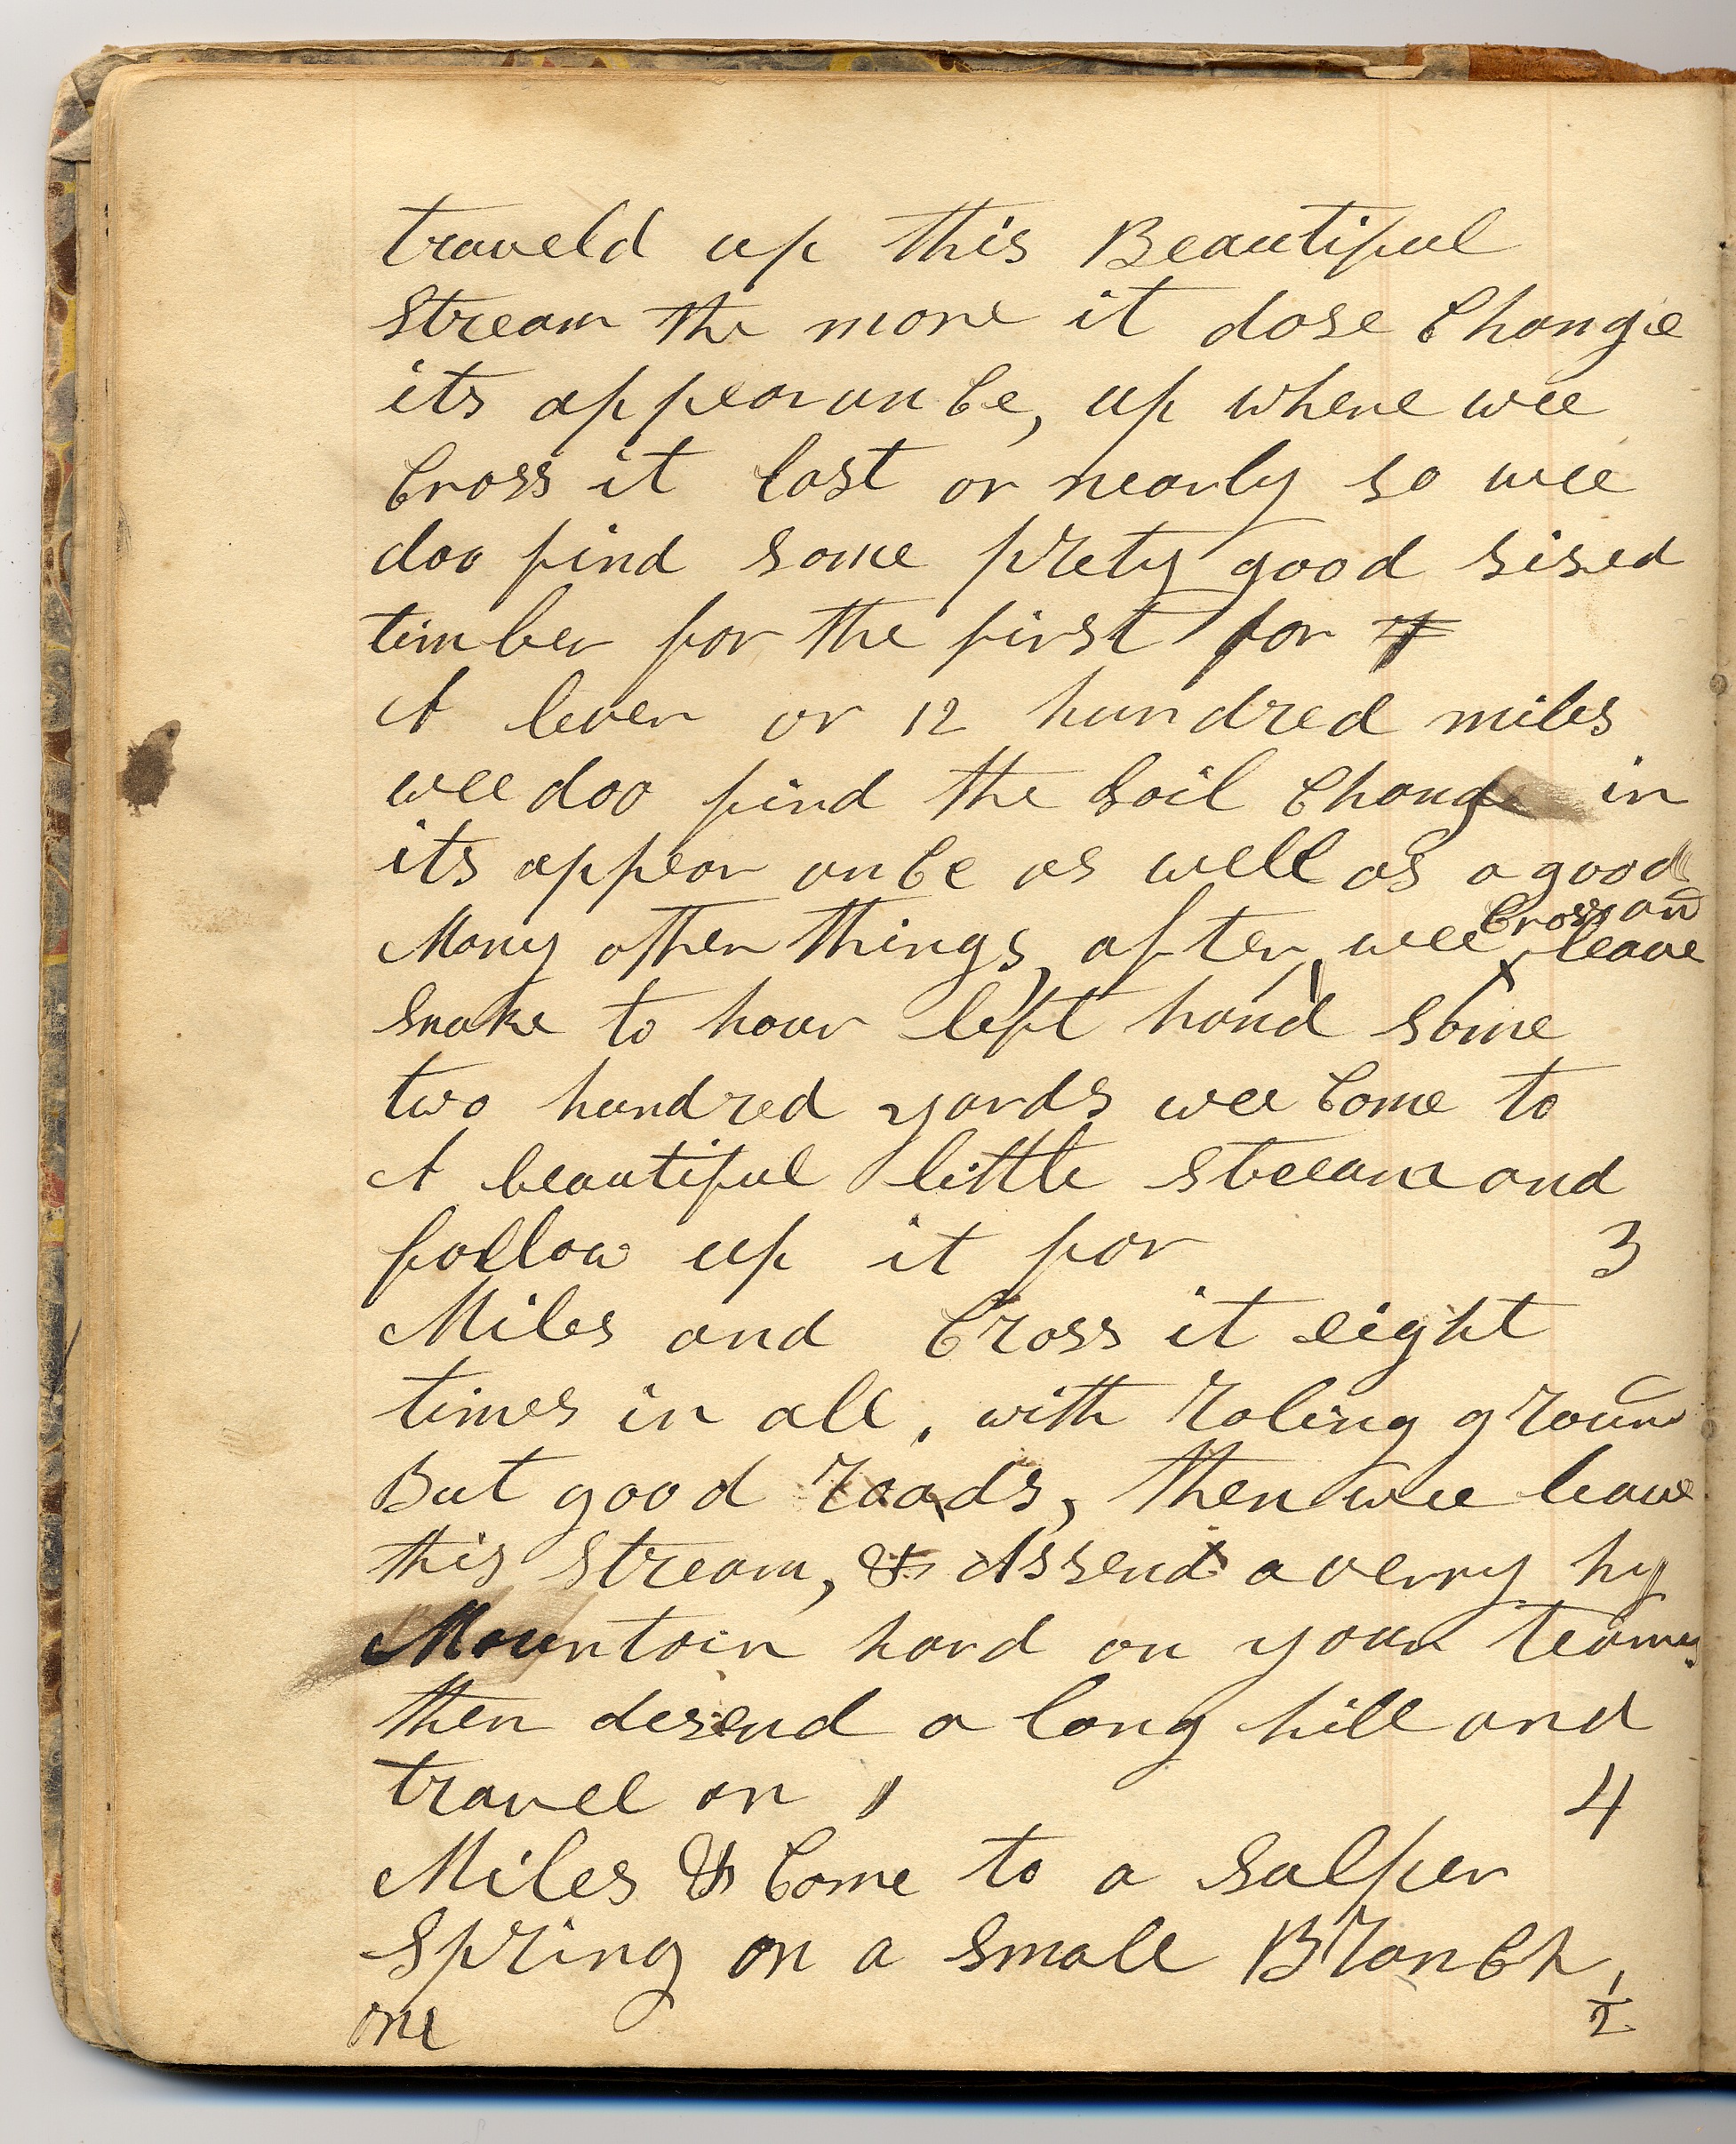 traveld up this Beautiful
Stream the more it dose Change
its appearance, up where wee
Cross it last or nearly so wee
doo find some prety good sised
timber for the first for
A leven or 12 hundred miles
wee doo find the Soil Change in
its appearance as well as a good
Many other things, after wee Cross and leave
Snake to hour left hand some
two hundred yards wee Come to
A beautiful little stream and
follow up it for 3
Miles and Cross it eight
times in all, with roling ground
But good roads, then wee leave
this Stream, & Assend a verry hy
Mountain hard on your teams
then desend a long hill and
travel on 4
Miles & Come to a Sulper
Spring on a Small Branch,
one 1/2